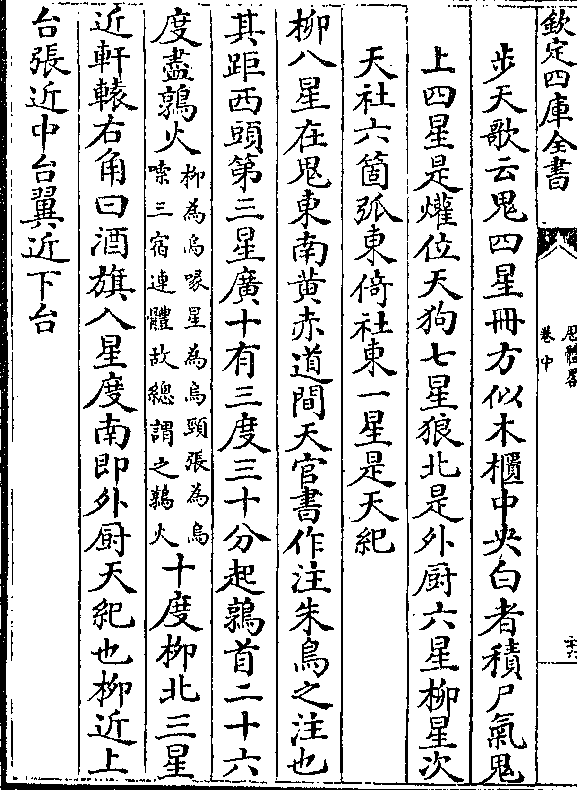 欽定四庫全書
卷中
步天歌云鬼四星冊方似木櫃中央白者積尸氣鬼
上四星是爟位天狗七星狼北是外厨六星柳星次
天社六箇弧東倚社東一星是天紀
柳八星在鬼東南黄赤道間天官書作注朱鳥之注也
其距西頭第三星廣十有三度三十分起鶉首二十六
度盡鶉火
柳為鳥喙星為鳥頸張為鳥
嗉三宿連體故總謂之鶉火
十度柳北三星
近軒轅右角曰酒旗入星度南即外厨天紀也柳近上
台張近中台翼近下台